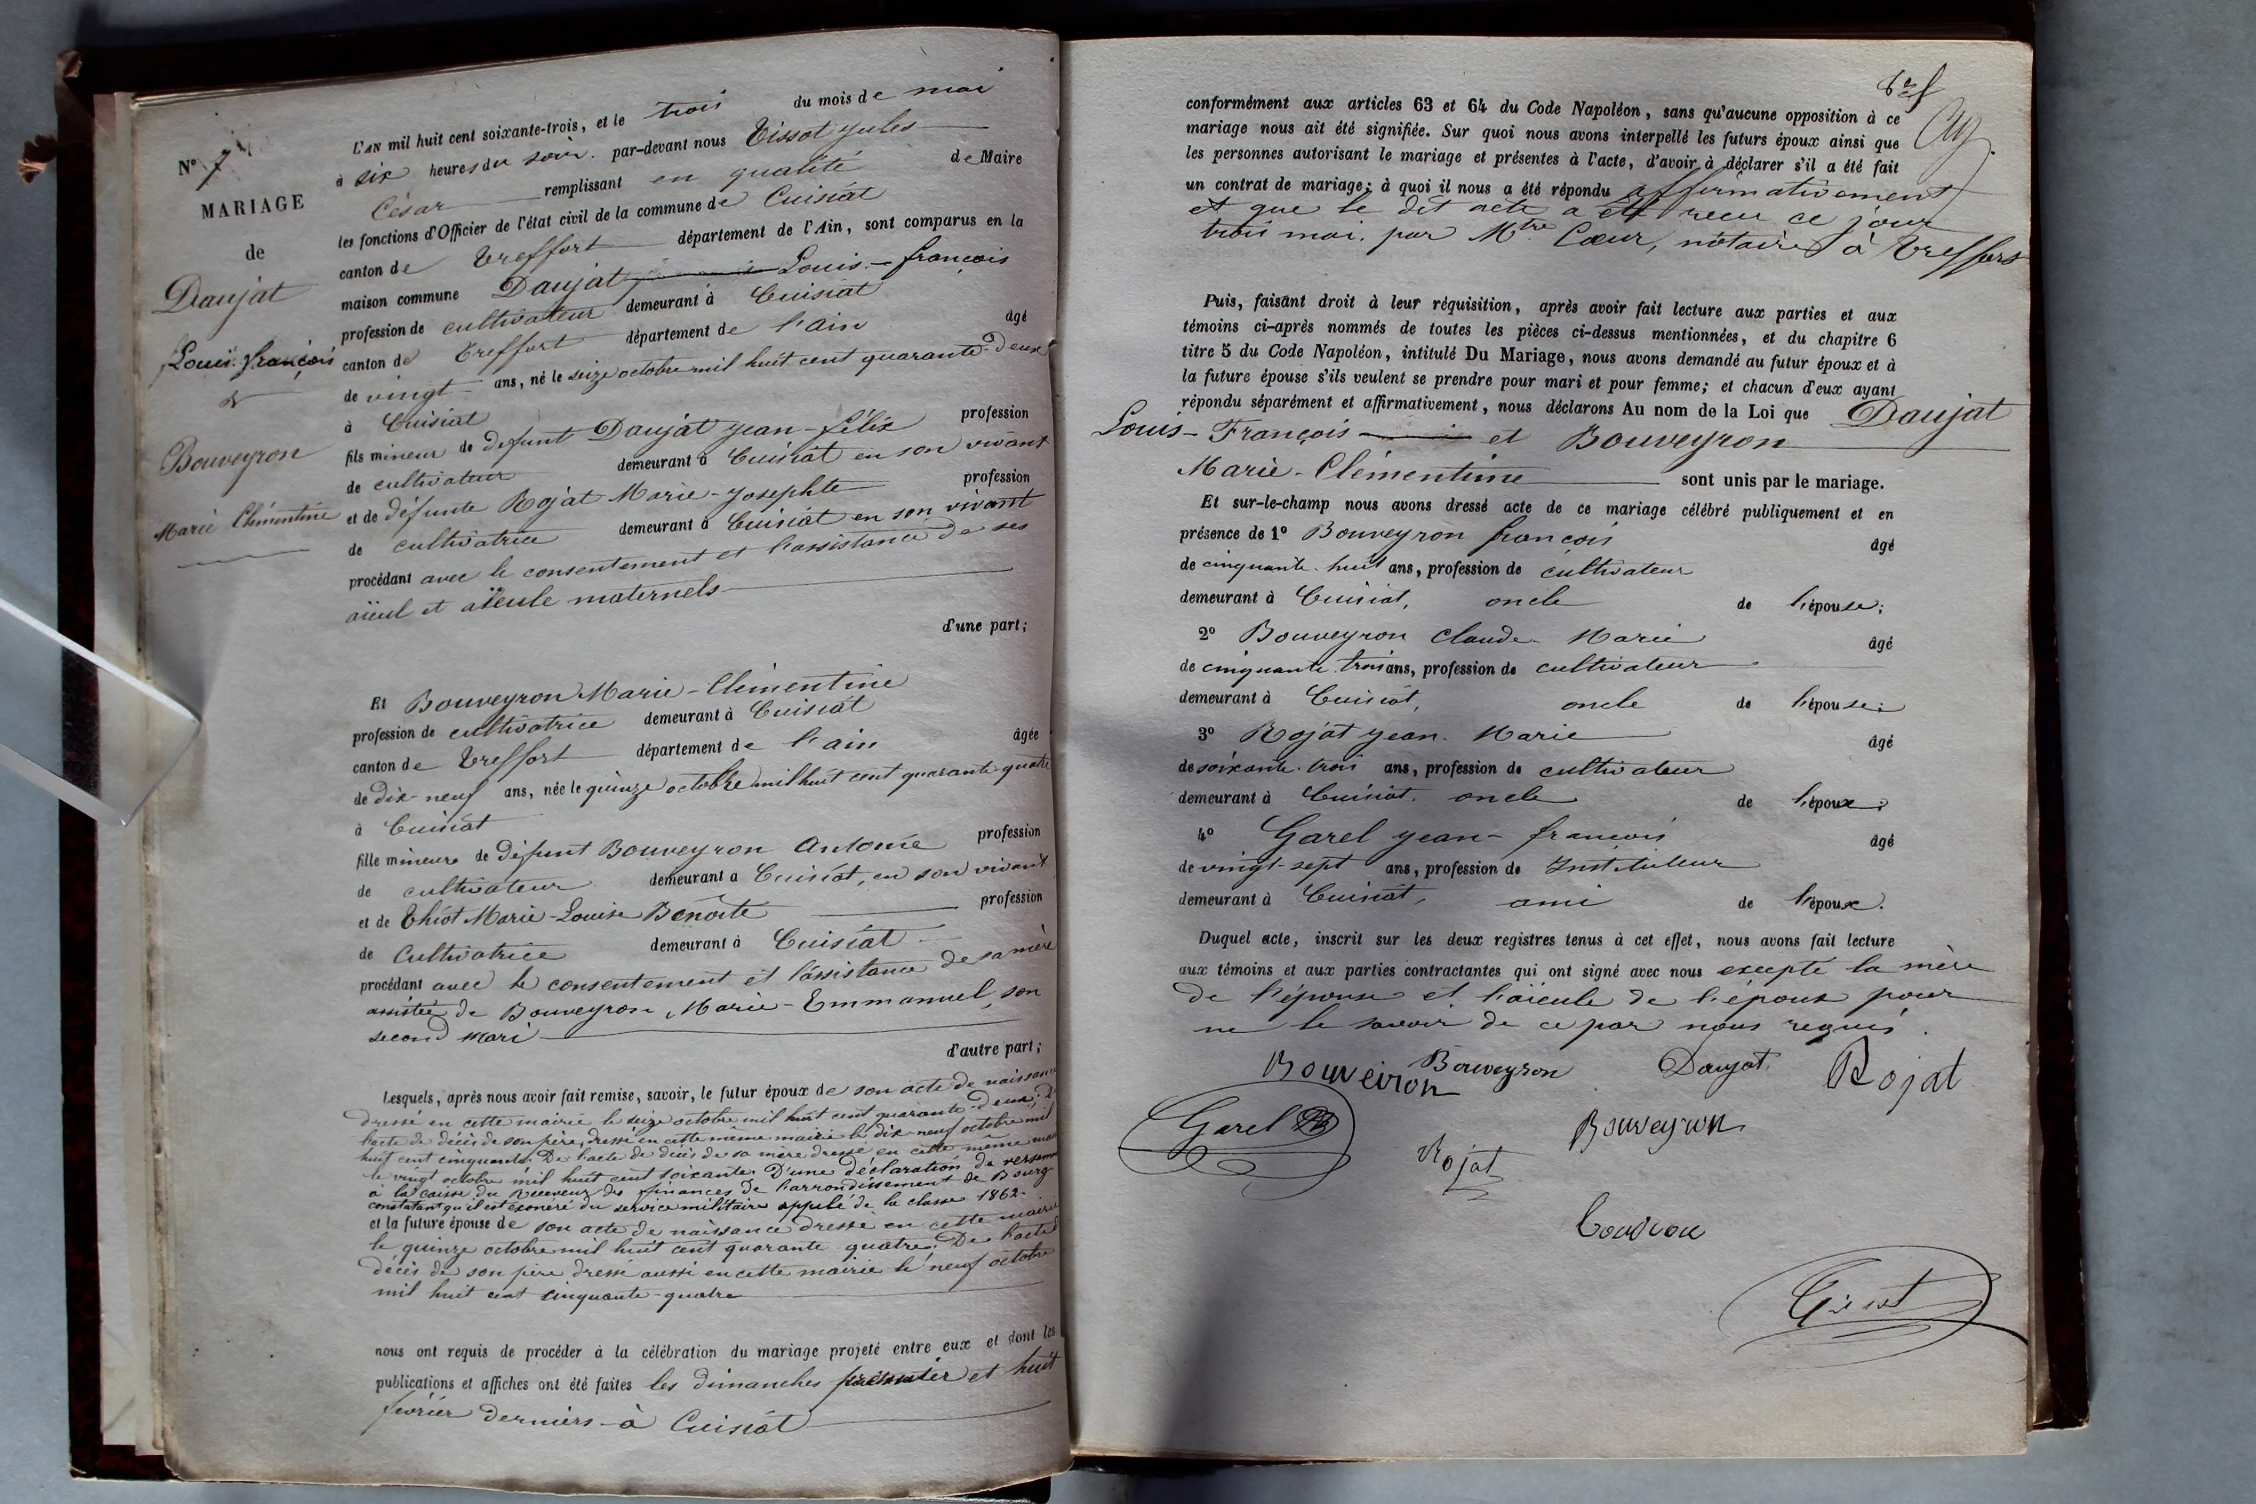 N° 7
MARIAGE
de
Daujat
Louis-françois
&
Bouveyron
Marie Clémentine
L'AN mil huit cent soixante-trois, et le trois du mois de mai
à six heures du soir. par-devant nous Tissot Jules
César remplissant en qualité de Maire
les fonctions d'Officier de l'état civil de la commune de Cuisiat
canton de Treffort département de l'Ain, sont comparus en la
maison commune Daujat Louis-françois
profession de cultivateur demeurant à Cuisiat
canton de Treffort département de l'ain âgé
de vingt ans, né le seize octobre mil huit cent quarante-deux
à Cuisiat
fils mineur de défunt Daujat Jean-félix profession
de cultivateur demeurant à Cuisiat en son vivant
et de défunte Rojat Marie-Josephte profession
de cultivatrice demeurant à Cuisiat en son vivant
procédant avec le consentement et l'assistance de ses
aïeul et aïeule maternels
d'une part;
Et Bouveyron Marie-Clémentine
profession de cultivatrice demeurant à Cuisiat
canton de Treffort département de l'ain âgée
de dix-neuf ans, née le quinze octobre mil huit cent quarante quatre
à Cuisiat
fille mineure de défunt Bouveyron Antoine profession
de cultivateur demeurant à Cuisiat, en son vivant
et de Thiot Marie-Louise Benoite profession
de Cultivatrice demeurant à Cuisiat
procédant avec le consentement et l'assistance de sa mère
assistée de Bouveyron Marie-Emmanuel, son
second mari
d'autre part;
Lesquels, après nous avoir fait remise, savoir, le futur époux de son acte de naissance
dressé en cette mairie le seize octobre mil huit cent quarante-deux; De
l'acte de décès de son père, dressé en cette même mairie le dix-neuf octobre mil
huit cent cinquante. De l'acte de décès de sa mère dressé en cette même mairie
le vingt octobre mil huit cent soixante. D'une déclaration de versement
à la caisse du Receveur des finances de l'arrondissement de Bourg
constatant qu'il est exonéré du service militaire appelé de la classe 1862.
et la future épouse de son acte de naissance dressé en cette mairie
le quinze octobre mil huit cent quarante quatre. De l'acte de
décès de son père dressé aussi en cette mairie le neuf octobre
mil huit cent cinquante-quatre
nous ont requis de procéder à la célébration du mariage projeté entre eux et dont les
publications et affiches ont été faites les dimanches premier et huit
février derniers à Cuisiat
conformément aux articles 63 et 64 du Code Napoléon, sans qu'aucune opposition à ce
mariage nous ait été signifiée. Sur quoi nous avons interpellé les futurs époux ainsi que
les personnes autorisant le mariage et présentes à l'acte, d'avoir à déclarer s'il a été fait
un contrat de mariage; à quoi il nous a été répondu affirmativement
et que le dit acte a été reçu ce jour
trois mai, par Mtre Cœur, notaire à Treffort
Puis, faisant droit à leur réquisition, après avoir fait lecture aux parties et aux
témoins ci-après nommés de toutes les pièces ci-dessus mentionnées, et du chapitre 6
titre 5 du Code Napoléon, intitulé Du Mariage, nous avons demandé au futur époux et à
la future épouse s'ils veulent se prendre pour mari et pour femme; et chacun d'eux ayant
répondu séparément et affirmativement, nous déclarons Au nom de la Loi que Daujat
Louis-François et Bouveyron
Marie-Clémentine sont unis par le mariage.
Et sur-le-champ nous avons dressé acte de ce mariage célébré publiquement et en
présence de 1° Bouveyron françois âgé
de cinquante-huit ans, profession de cultivateur
demeurant à Cuisiat, oncle de l'épouse;
2° Bouveyron Claude-Marie âgé
de cinquante-trois ans, profession de cultivateur
demeurant à Cuisiat, oncle de l'épouse;
3° Rojat Jean-Marie âgé
de soixante-trois ans, profession de cultivateur
demeurant à Cuisiat. oncle de l'époux;
4° Garel Jean-françois âgé
de vingt-sept ans, profession de Instituteur
demeurant à Cuisiat, ami de l'époux.
Duquel acte, inscrit sur les deux registres tenus à cet effet, nous avons fait lecture
aux témoins et aux parties contractantes qui ont signé avec nous excepté la mère
de l'épouse et l'aïeule de l'époux pour
ne le savoir de ce par nous requis.
Bouveiron Bouveyron Daujat Rojat
Garel
Bouveyron
Rojat